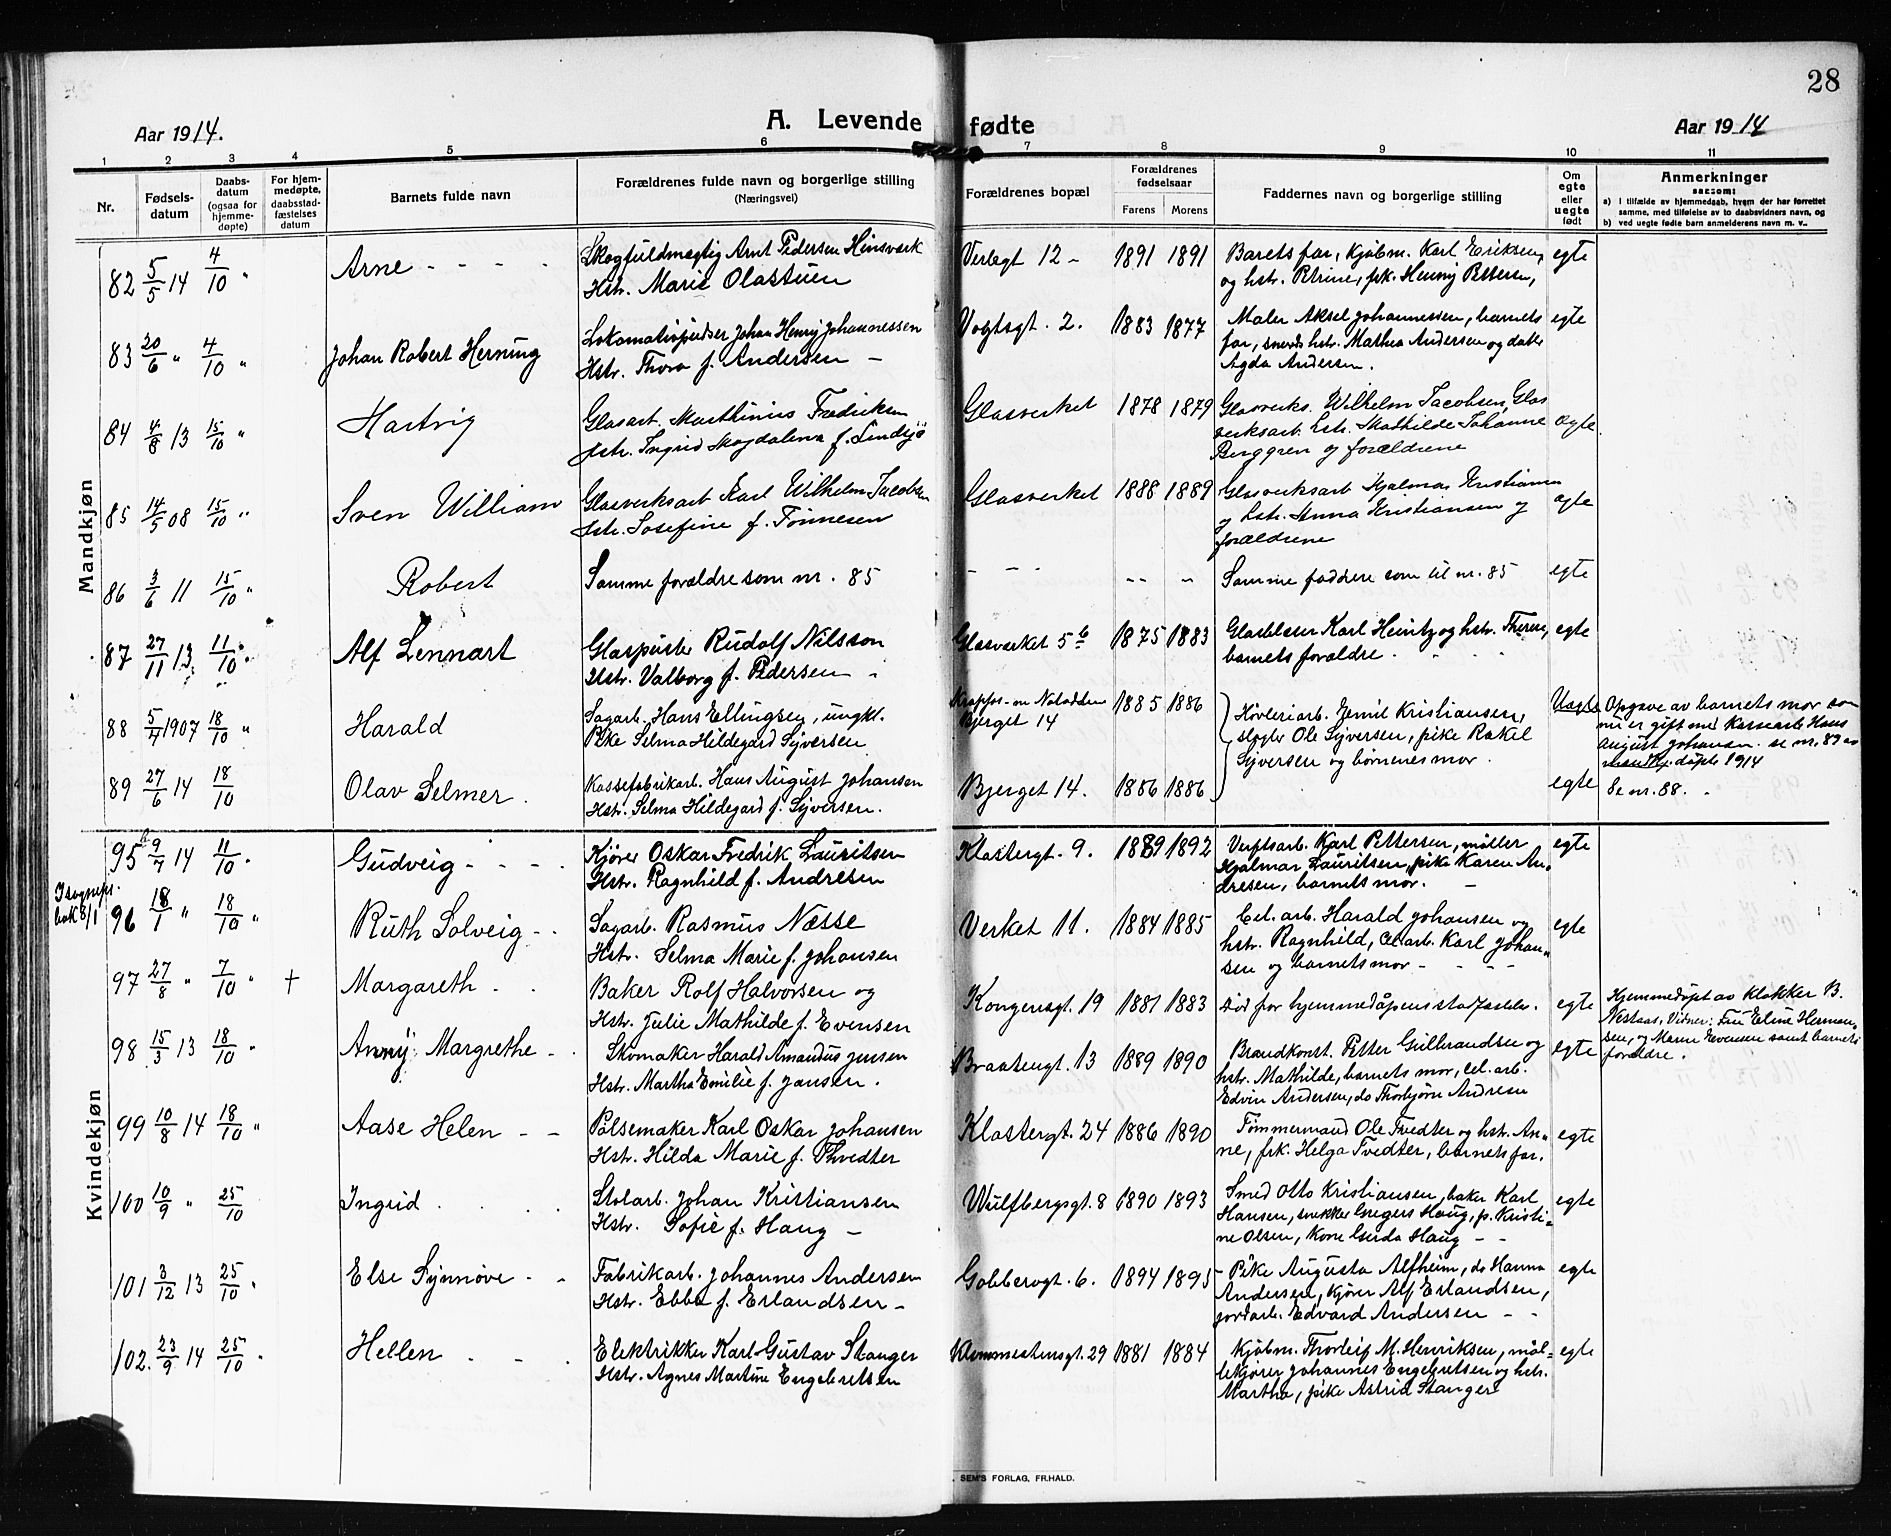 28
Aar 1914.
A. Levende fødte
Aar 1914
1 2 3 4 5 6 7 8 9 10 11
Nr.
Fødsels-
datum
Daabs-
datum
(ogsaa for
hjemme-
døpte)
For hjem-
medøpte,
daabsstad-
fæstelses
datum
Barnets fulde navn
Forældrenes fulde navn og borgerlige stilling
(Næringsvei)
Forældrenes bopæl
Forældrenes
fødselsaar
Farens Morens
Faddernes navn og borgerlige stilling
Om
egte
eller
uegte
født
Anmerkninger
saasom:
a) i tilfælde av hjemmedaab, hvem der har forrettet
samme, med tilføielse av to daabsvidners navn, og
b) ved uegte fødte barn anmelderens navn m. v..
Mandkjøn
82 5/5 14 4/10 " Arne - - - -
Skogfuldmægtig Arnt Pedersen Hinsverk
Hstr. Marie Olasteien
Verlegt 12 - 1891 1891
Barets far, Kjøbm. Karl Eriksen,
og hstr. Petrine, frk. Henny Pettersen,
egte
83 20/6 " 4/10 " Johan Robert Herning
Lokomotivpudser Johan Henry Johannessen
Hstr. Thora f. Andersen -
Vogtsgt. 2. 1883 1877
Maler Aksel Johannessen, barnets
far, smeds hstr. Mathea Andersen og datter
Agda Andersen.
egte
84 4/8 13 15/10 " Hartvig
Glasarb. Marthinius Fredriksen
Hstr. Ingrid Magdalena f. Lindsjö
Glasverket 1878 1879
Glasverks. Wilhelm Jacobsen, Glas
verksarb. hstr. Mathilde Johanne
Berggren og forældrene
egte
85 14/5 08 15/10 " Sven William
Glasverksarb Karl Wilhelm Jacobsen
Hstr. Josefine f. Tönnesen
Glasverket 1888 1889
Glasverksarb Hjalmar Kristiansen
og hstr. Anna Kristiansen og
forældrene
egte
86 3/6 11 15/10 " Robert
Samme forældre som nr. 85
- - - -- -
Samme faddere som til nr. 85 egte
87 27/11 13 11/10 " Alf Lennart
Glaspuster Rudolf Nilsson
Hstr. Valborg f. Pedersen -
Glasverket 5b 1875 1883
Glasblæser Karl Heintz og hstr. Therese,
barnets forældre.
egte
88 5/7 1907 18/10 " Harald
Sagarb. Hans Ellingsen, ungkl.
Pike Selma Hildegard Syversen
Notodden
Bjerget 14 1885 1886
Høvleriarb. Emil Kristiansen,
slagter Ole Syversen, pike Rakel
Syversen og børnenes mor.
Uegte
Opgave av barnets mor som
nu er gift med Kassearb. Hans
August Johansen. se nr. 89 av
mandkj. døpte 1914
89 27/6 14 18/10 Olav Selmer.
Kassefabrikarb. Hans August Johansen
Hstr. Selma Hildegard f. Syversen.
Bjerget 14. 1886 1886
egte Se nr. 88.
Kvindekjøn
95 9/7 14 11/10 " Gudveig - - - -
Kjører Oskar Fredrik Lauritsen
Hstr. Ragnhild f. Andresen
Klostergt. 9. 1889 1892
Verftsarb. Karl Pettersen, møller
Hjalmar Lauritsen, pike Karen An-
dresen, barnets mor. -
egte
bok 8/1
96 18/1 " 18/10 " Ruth Solveig - -
Sagarb. Rasmus Næsse
Hstr. Selma Marie f. Johansen
Verket 11. 1884 1885
Cel. arb. Harald Johansen og
hstr. Ragnhild, cel. arb. Karl Johan-
sen og barnets mor - - - -
egte
97 27/8 " 7/10 " + Margareth - -
Baker Rolf Halvorsen og
Hstr. Julie Mathilde f. Evensen
Kongensgt. 19 1881 1883
Død før hjemmedåpens stadfæstelse. egte
Hjemmedøpt av klokker B.
Nestaas, Vidner: Fru Eline Herman-
sen, og Maren Evensen samt barnets
foreldre.
98 15/3 13 18/10 " Anny Margrethe - -
Skomaker Harald Amandus Jensen
Hstr. Martha Emilie f. Jansen.
Braatengt. 13 1889 1890
Brandkonst. Petter Gulbrandsen og
hstr. Mathilde, barnets mor, cel. arb.
Edvin Andersen, do Thorbjørn Andresen
egte
99 10/8 14 18/10 " Aase Helen - -
Pølsemaker Karl Oskar Johansen
Hstr. Hilda Marie f. Thvedter
Klostergt. 24 1886 1890
Tømmermand Ole Tvedter og hst. An-
ne, frk. Helga Tvedter, barnets far.
egte
100 10/9 " 25/10 Ingrid . . . .
Stolarb. Johan Kristiansen
Hstr. Sofie f. Haug -
Wulfbergsgt. 8 1890 1893
Smed Otto Kristiansen, baker Karl
Hansen, snekker Gregers Haug, p. Kristi-
ne Olsen, Kone Gerda Haug - -
egte
101 3/12 13 25/10 " Else Synnøve - -
Fabrikarb. Johannes Andersen
Hstr. Ebba f. Erlandsen -
Gobbervgt. 6. 1894 1895
Pike Augusta Alfheim, do Hanna
Andersen, Kjører Alf Erlandsen,
jordarb. Edvard Andersen - -
egte
102. 23/9 14 25/10 " Hellen - - -
Elektrikker Karl Gustav Stanger
Hstr. Agnes Martine Engebretsen
Klommestensgt. 29 1881 1884
Kjøbm. Thorleif M. Henriksen, møl-
lekjører Johannes Engebretsen og hstr.
Martha, pike Astrid Stanger
egte
SEM'S FORLAG, FR.HALD.